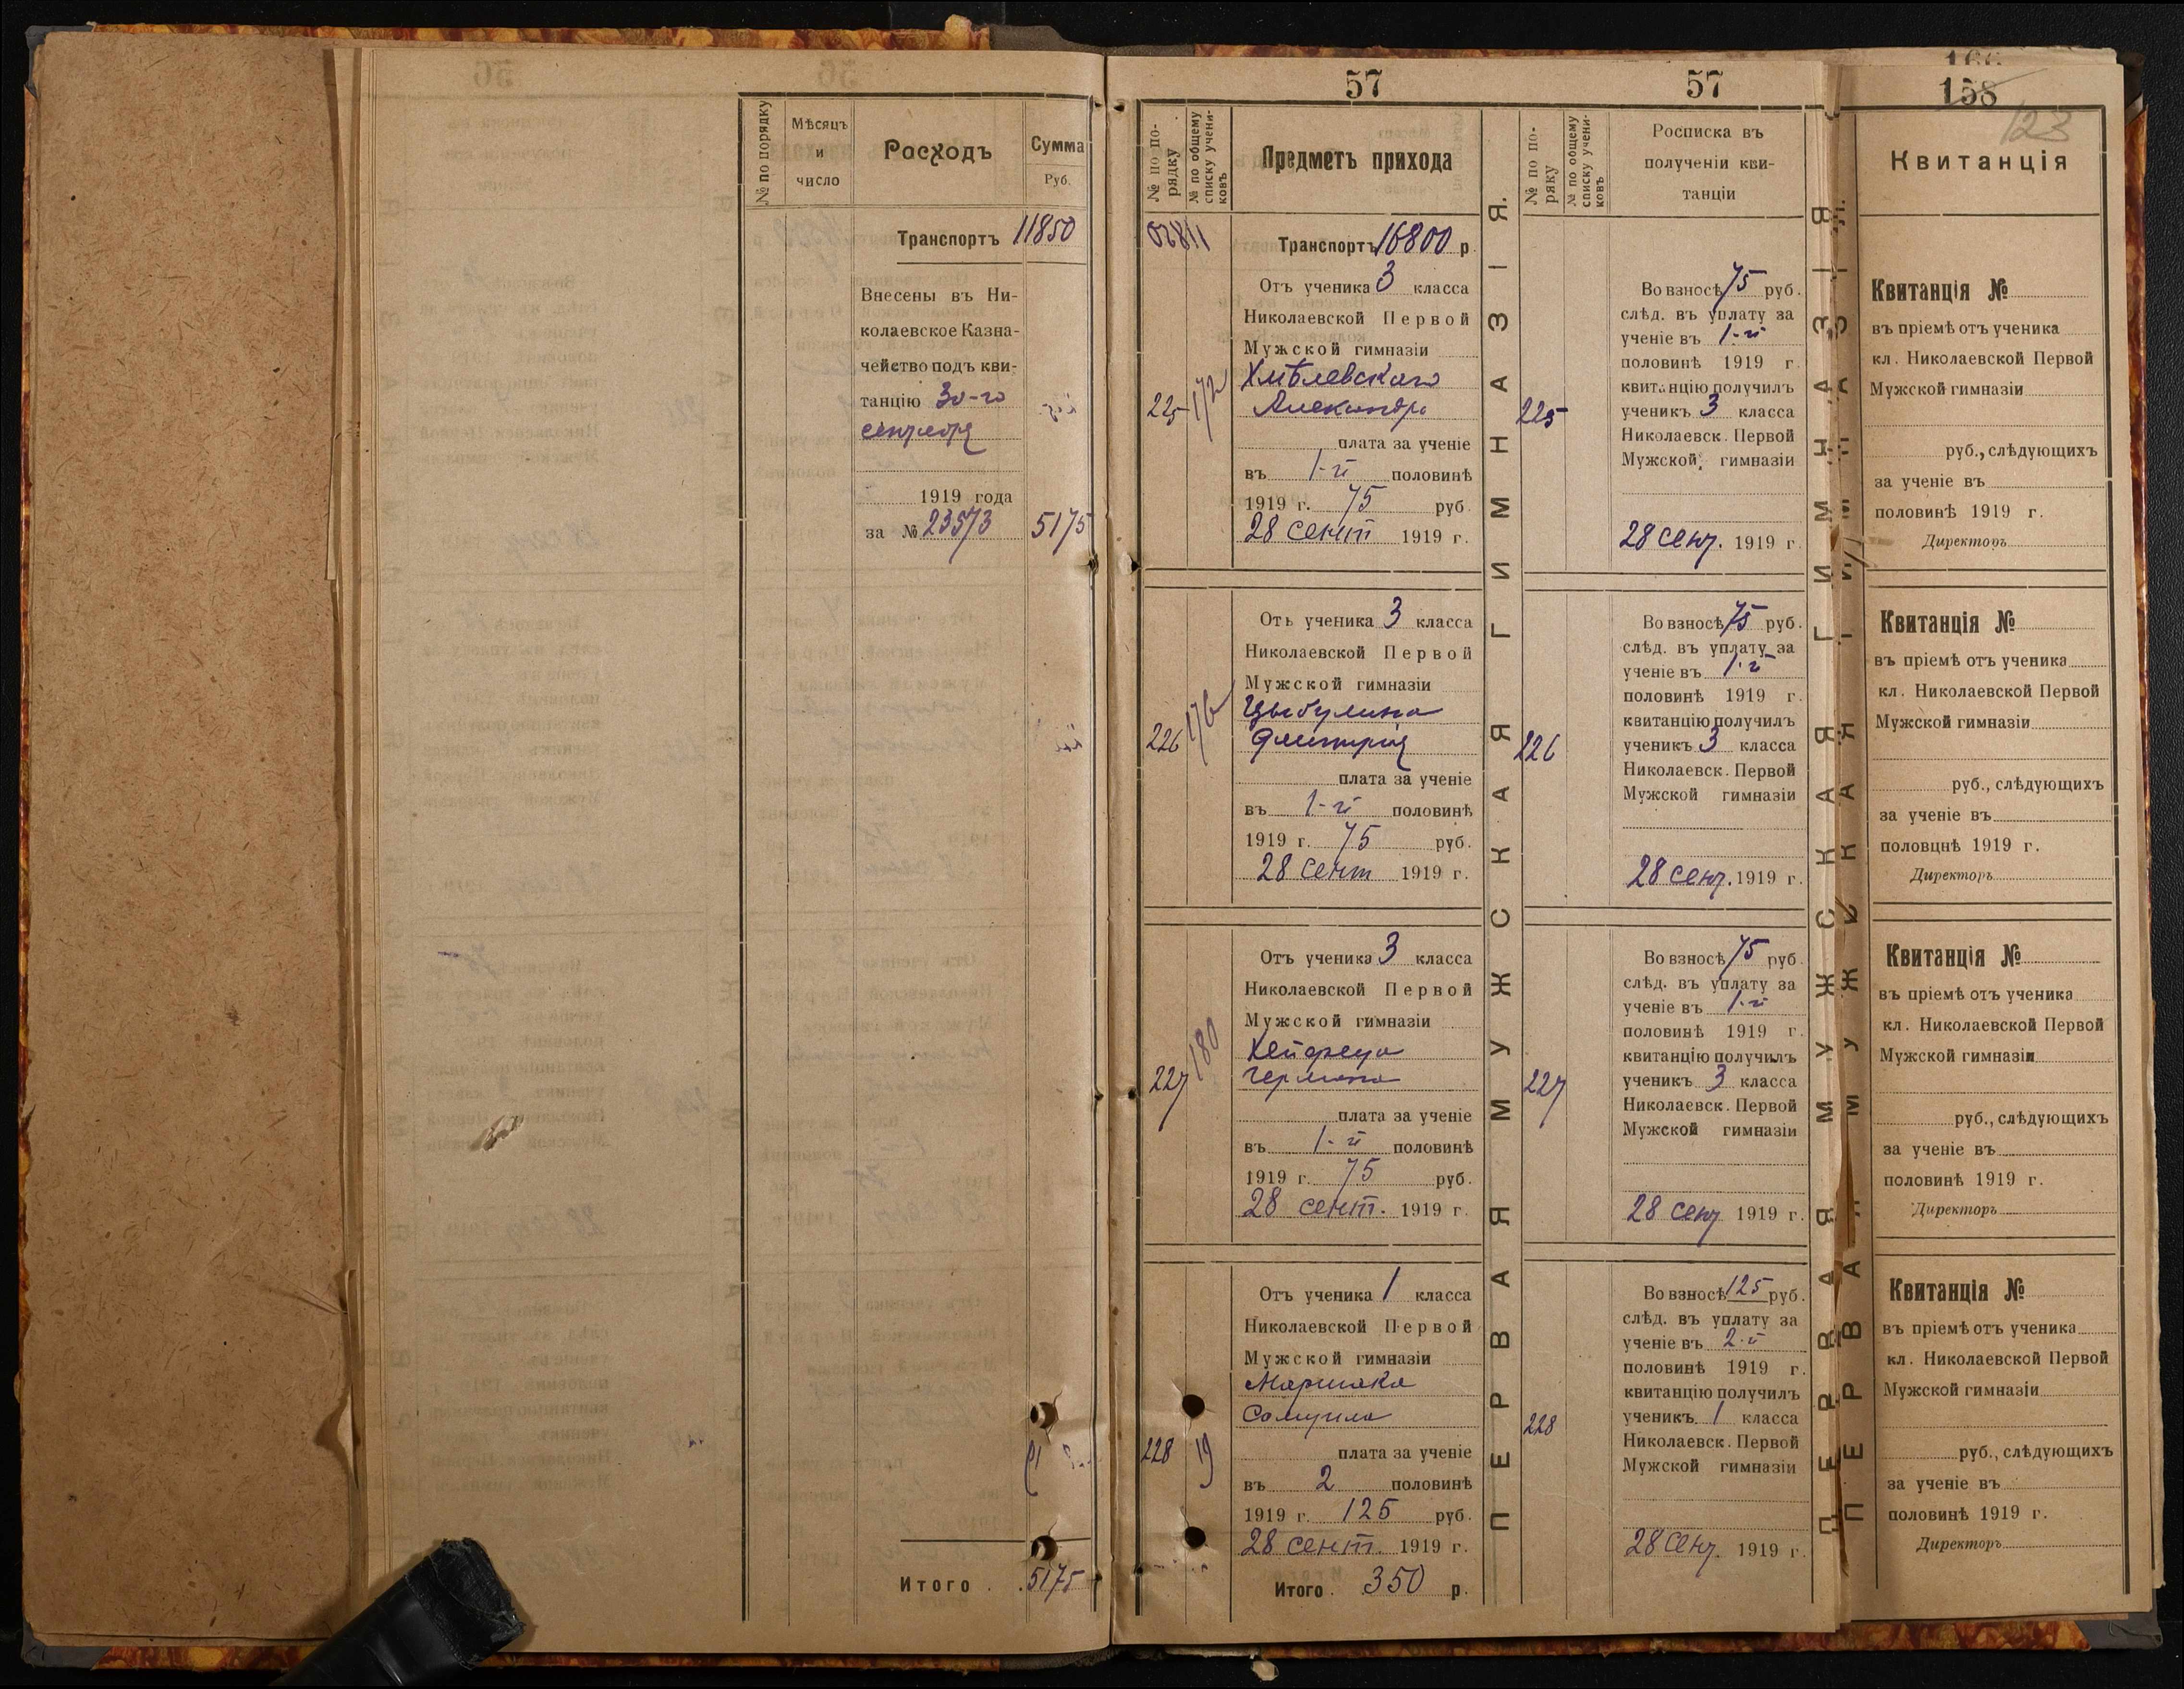 № по порядку
Мѣсяцъ
и
число
Расходъ
Сумма
Руб.
Транспортъ 11850
Внесены въ Ни-
колаевское Казна-
чейство подъ кви-
танцію 30-го
сентября
1919 года
за № 23573 5175
Итого 5175
57
№ по по-
рядку
№ по общему
списку учени-
ковъ
Предметъ прихода
Транспортъ 16800 р.
Отъ ученика 3 класса
Николаевской Первой
Мужской гимназіи
Хмѣлевскаго
225 172 Александра
плата за ученіе
въ 1-й половинѣ
1919 г. 75 руб
28 сент 1919 г.
Отъ ученика 3 класса
Николаевской Первой
Мужской гимназіи
Цыбулина
226 176 Дмитрія
плата за ученіе
въ 1-й половинѣ
1919 г. 75 руб.
28 сент 1919 г.
Отъ ученика 3 класса
Николаевской Первой
Мужской гимназіи
Хейфеца
227 180 Германа
плата за ученіе
въ 1-й половинѣ
1919 г. 75 руб.
28 сент. 1919 г.
Отъ ученика 1 класса
Николаевской Первой
Мужской гимназіи
Маршака
Самуила
228 19 плата за ученіе
въ 2 половинѣ
1919 г. 125 руб.
28 сент. 1919 г.
Итого. 350 р.
ПЕРВАЯ МУЖСКАЯ ГИМНАЗІЯ.
57
№ по по-
ряку
№ по общему
списку учени-
ковъ
Росписка въ
полученіи кви-
танціи
Во взносѣ 75 руб.
слѣд. въ уплату за
ученіе въ 1-й
половинѣ 1919 г.
квитанцію получилъ
225 ученикъ 3 класса
Николаевск. Первой
Мужской гимназіи
28 сент. 1919 г.
Во взносѣ 75 руб.
слѣд. въ уплату за
ученіе въ 1-й
половинѣ 1919 г.
квитанцію получилъ
226 ученикъ 3 класса
Николаевск. Первой
Мужской гимназіи
28 сент. 1919 г.
Во взносѣ 75 руб.
слѣд. въ уплату за
ученіе въ 1-й
половинѣ 1919 г.
квитанцію получилъ
227 ученикъ 3 класса
Николаевск. Первой
Мужской гимназіи
28 сент 1919 г.
Во взносѣ 125 руб.
слѣд. въ уплату за
ученіе въ 2-й
половинѣ 1919 г.
квитанцію получилъ
228 ученикъ 1 класса
Николаевск. Первой
Мужской гимназіи
28 сент. 1919 г.
ПЕРВАЯ МУЖСКАЯ ГИМНАЗІЯ
158
123
Квитанція
Квитанція №
въ пріемѣ отъ ученика
кл. Николаевской Первой
Мужской гимназіи
руб., слѣдующихъ
за ученіе въ
половинѣ 1919 г.
Директоръ
Квитанція №
въ пріемѣ отъ ученика
кл. Николаевской Первой
Мужской гимназіи
руб., слѣдующихъ
за ученіе въ
половцнѣ 1919 г.
Директоръ
Квитанція №
въ пріемѣ отъ ученика
кл. Николаевской Первой
Мужской гимназіи
руб., слѣдующихъ
за ученіе въ
половинѣ 1919 г.
Директоръ
Квитанція №
въ пріемѣ отъ ученика
кл. Николаевской Первой
Мужской гимназіи
руб., слѣдующихъ
за ученіе въ
половинѣ 1919 г.
Директоръ